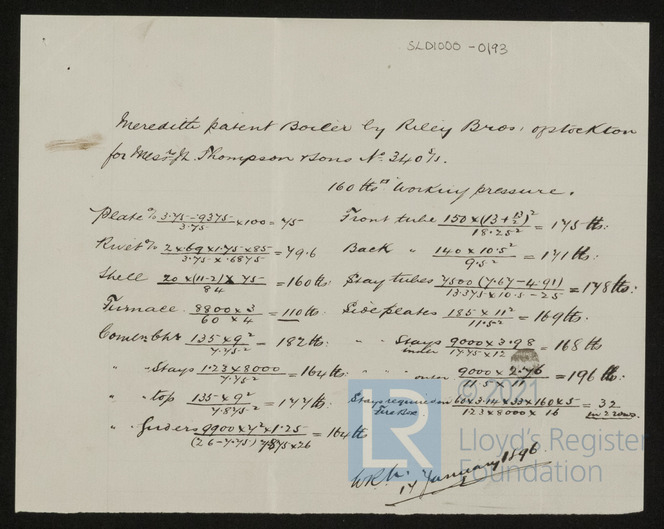 SLD1000-0193
Meredith patent Boiler by Riley Bros: of Stockton
for Messrs J. Thompson & Sons No. 340 5/s.
160 lbs Working pressure.
Plate % (3.75-.9375)/3.75 x100 = 75
Rivet % (2 x 69 x 1.75 x 85)/(3.75 x .6875) = 79.6
Shell (20 x (11-2) x 75)/84 = 160 lbs
Furnace (8800 x 3)/(60 x 4) = 110 lbs
Comb: Chr (135 x 9²)/7.75² = 182 lbs:
" Stays (1.23 x 8000)/7.75² = 164 lbs:
" top (135 x 9²)/7.875² = 177 lbs:
" girders (9900 x 7² x 1.25)/((26-7.75) 7.875 x 26) = 164 lbs
Front tube (150 x (13+13/2)²)/18.25² = 175 lbs:
Back " (140 x 10.5²)/9.5² = 171 lbs:
Stay tubes (7500 (7.67-4.91))/(13.375 x 10.5 - 25) = 178 lbs:
Side plates (185 x 11²)/11.5² = 169 lbs.
" Stays under (9000 x 3.98)/(17.75 x 12) = 168 lbs
" " over (9000 x 2.76)/(11.5 x) = 196 lbs:
Stays required in Fire Box (60 x 3.14 x 33 x 160 x 5)/(1.23 x 8000 x 16) = 32 in 2 rows.
17 January 1896
© 2021
LR
Lloyd's Register
Foundation